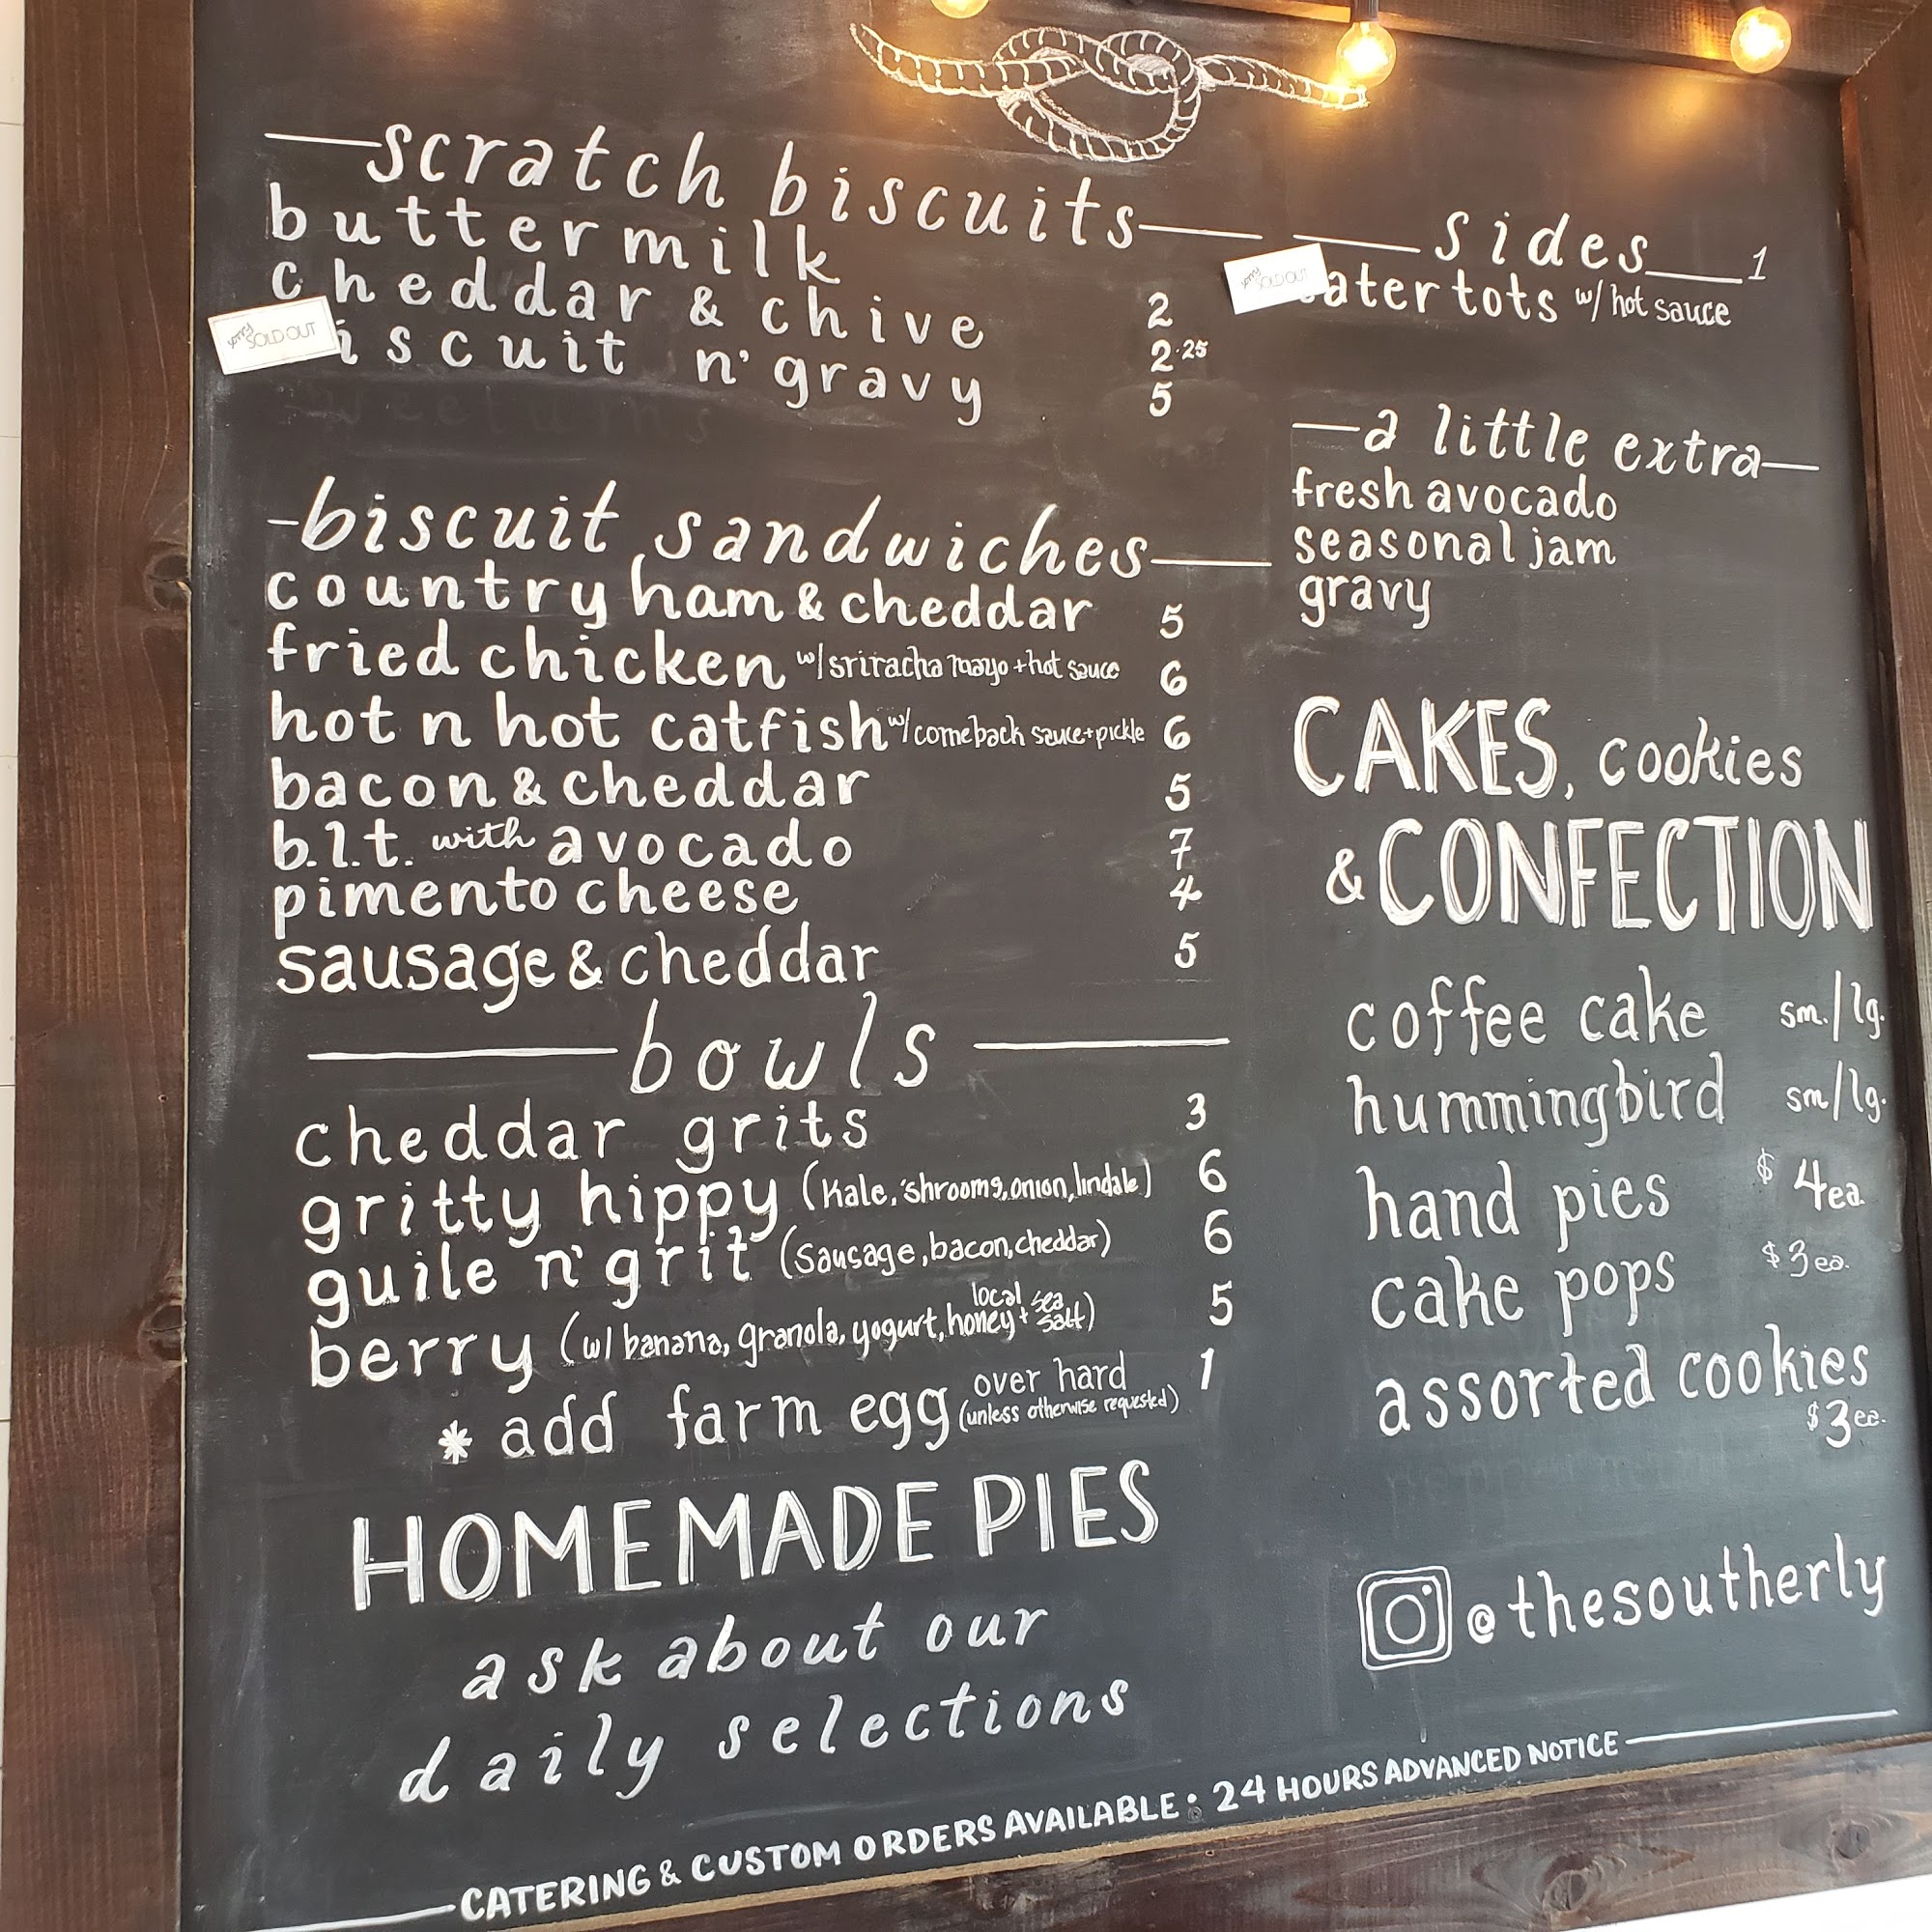 scratch biscuits
buttermilk 2
cheddar & chive 2.25
sorry SOLD OUT
iscuit n' gravy 5
biscuit sandwiches
country ham & cheddar 5
fried chicken w/ sriracha mayo + hot sauce 6
hot n hot catfish w/ comeback sauce + pickle 6
bacon & cheddar 5
b.l.t. with avocado 7
pimento cheese 4
sausage & cheddar 5
bowls
cheddar grits 3
gritty hippy (kale, 'shrooms, onion, lindale) 6
guile n' grit (sausage, bacon, cheddar) 6
berry (w/ banana, granola, yogurt, local honey + sea salt) 5
* add farm egg over hard (unless otherwise requested) 1
HOMEMADE PIES
ask about our
daily selections
sides 1
sorry SOLD OUT
ater tots w/ hot sauce
a little extra
fresh avocado
seasonal jam
gravy
CAKES, cookies
& CONFECTION
coffee cake sm./lg.
hummingbird sm/lg.
hand pies $4 ea.
cake pops $3 ea.
assorted cookies
$3 ea.
@thesoutherly
CATERING & CUSTOM ORDERS AVAILABLE: 24 HOURS ADVANCED NOTICE